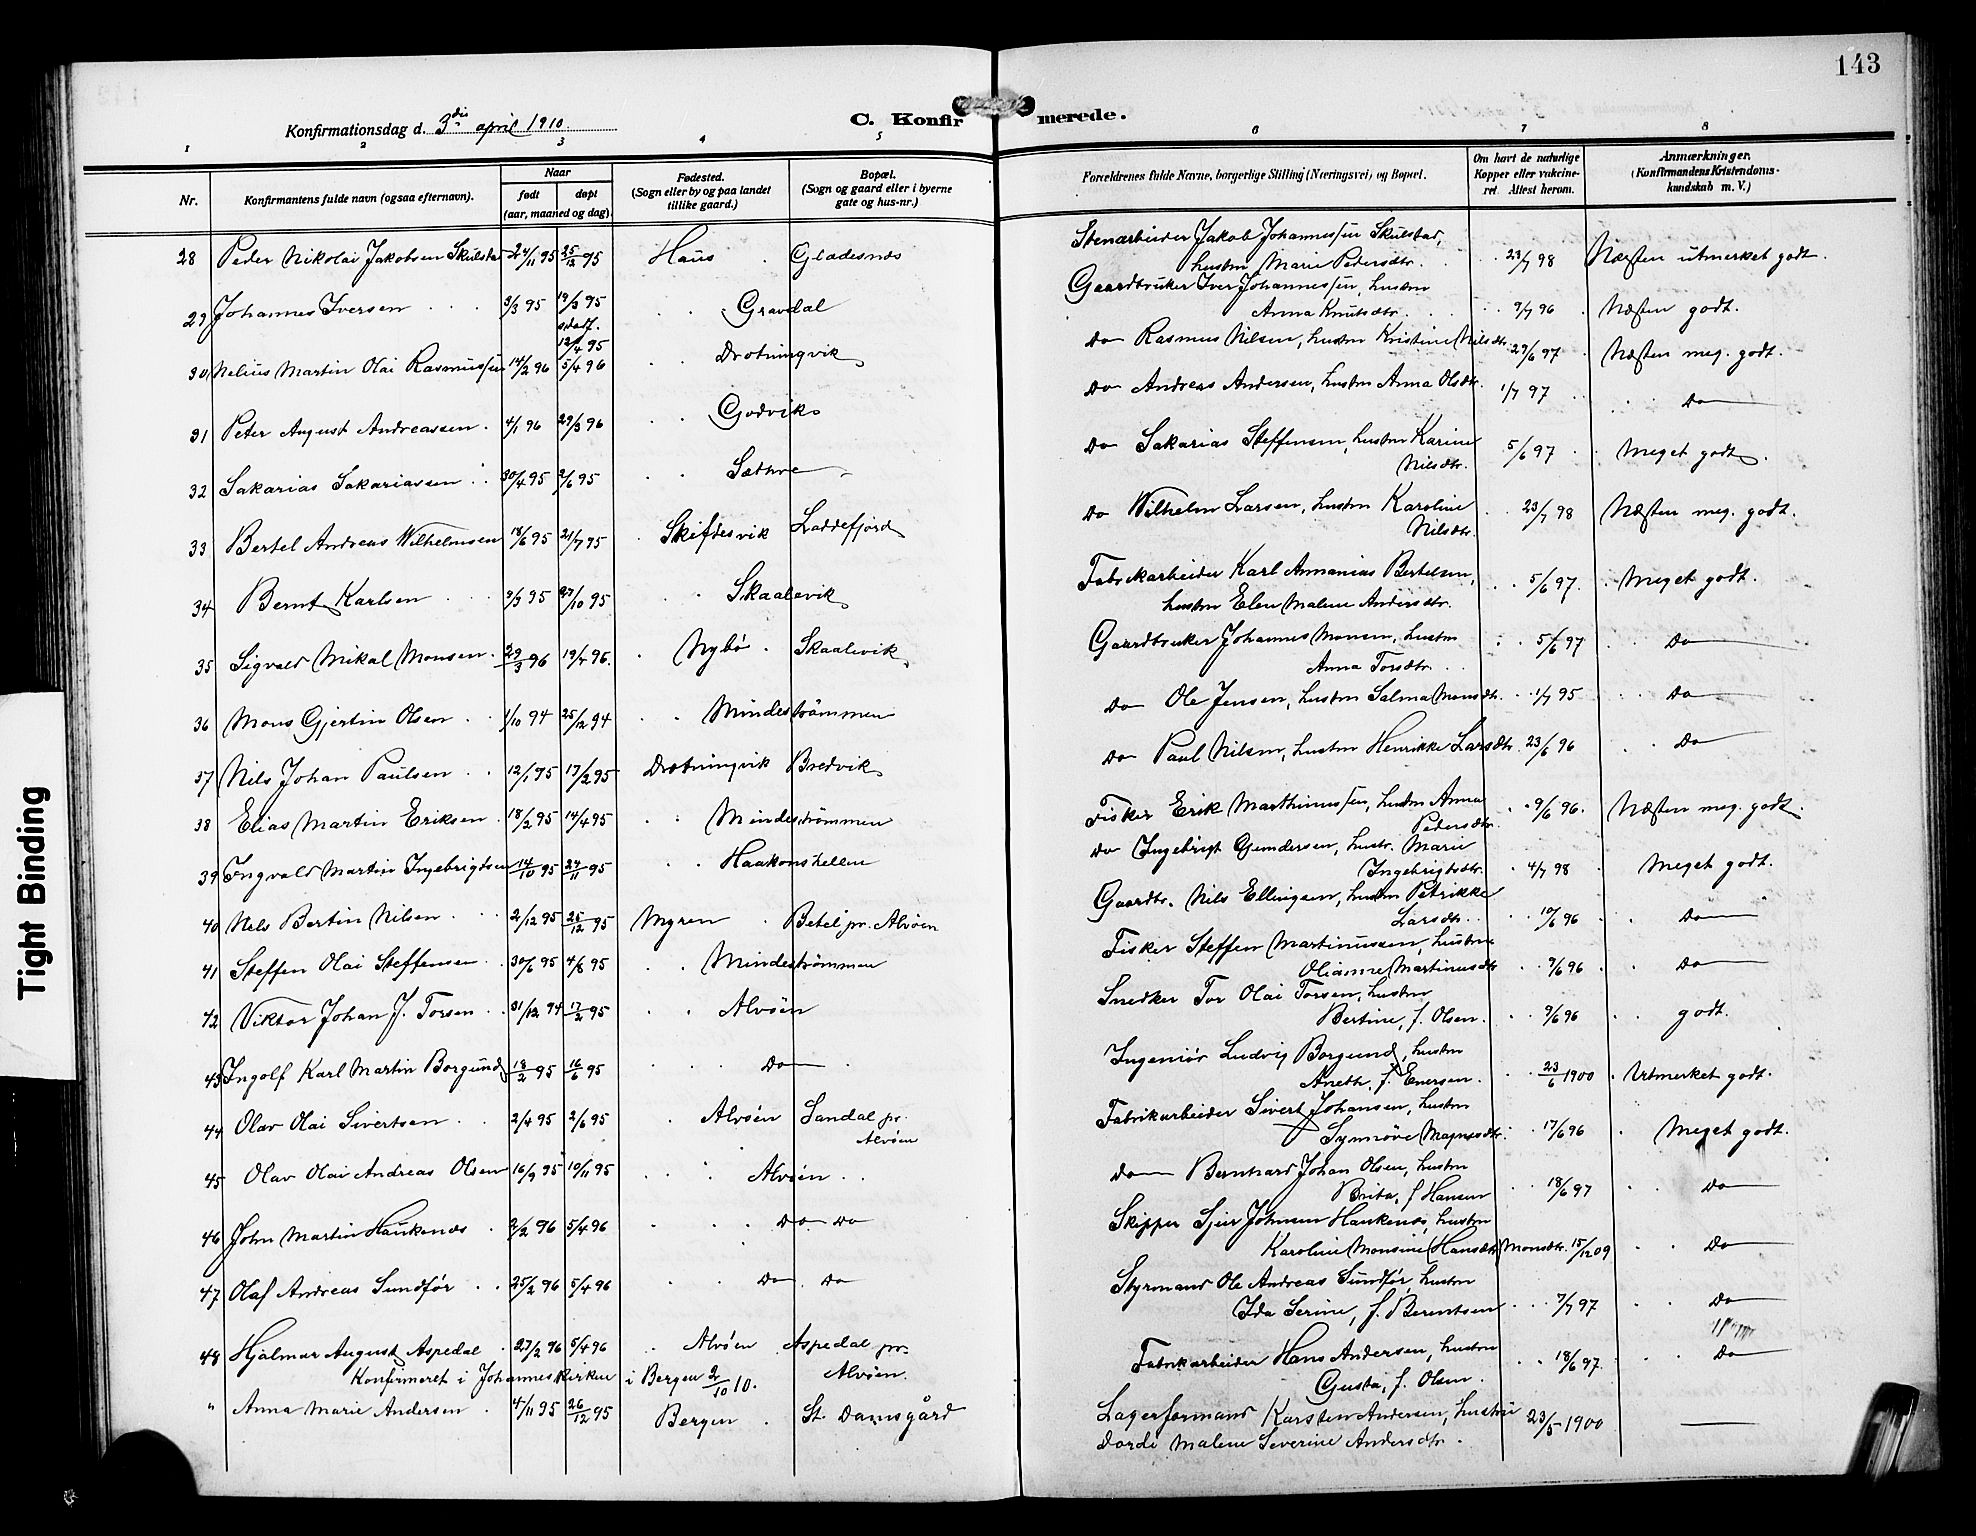 143
Konfirmationsdag d. 3die april 1910
C. Konfirmerede.
1 2 3 4 5 6 7 8
Nr. Konfirmantens fulde navn (ogsaa efternavn). Naar født døpt (aar, maaned og dag). Fødested. (Sogn eller by og paa landet tillike gaard.) Bopæl. (Sogn og gaard eller i byerne gate og hus-nr.) Forældrenes fulde Navne, borgerlige Stilling (Næringsvei) og Bopæl. Om havt de naturlige Kopper eller vakcineret. Attest herom. Anmærkninger. (Konfirmandens Kristendomskundskab m. V.)
28 Peder Nikolai Jakobsen Skulstad 24/11 95 25/12 95 Haus Gladesnes Stenarbeider Jakob Johannessen Skulstad, hustru Marie Pedersdtr. 23/7 98 Næsten utmerket godt.
29 Johannes Iversen 3/3 95 19/3 95 stadf. 12/4 95 Gravdal Gaardbruker Iver Johannessen, hustru Anna Knutsdtr. 9/7 96 Næsten godt.
30 Nelius Martin Olai Rasmussen 14/2 96 5/4 96 Drotningvik Do Rasmus Nilsen, hustru Kristine Nilsdtr. 29/6 97 Næsten meg. godt.
31 Peter August Andreassen 4/1 96 29/3 96 Godvik Do Andreas Andersen, hustru Anna Olsdtr. 1/7 97 Do
32 Sakarias Sakariassen 30/4 95 2/6 95 Sæthre Do Sakarias Steffensen, hustru Karine Nilsdtr. 5/6 97 Meget godt.
33 Bertel Andreas Wilhelmsen 18/6 95 21/7 95 Skiftesvik Loddefjord Do Wilhelm Larsen, hustru Karoline Nilsdtr. 23/7 98 Næsten meg. godt.
34 Bernt Karlsen 9/9 95 27/10 95 Skaalevik Fabrikarbeider Karl Annanias Bertelsen, hustru Elen Malene Andersdtr. 5/6 97 Meget godt.
35 Sigvald Mikal Monsen 29/3 96 19/7 96. Nybø Skaalevik Gaardbruker Johannes Monsen, hustru Anna Torsdtr. 5/6 97 Do
36 Mons Gjertin Olsen 1/10 94 25/12 94 Mindeströmmen Do Ole Jensen, hustru Salma Monsdtr. 1/7 95 Do
37 Nils Johan Paulsen 12/1 95 17/2 95 Drotningvik Bredvik Do Paul Nilsen, hustru Henrikke Larsdtr. 23/6 96 Do
38 Elias Martin Eriksen 18/2 95 14/4 95 Mindeströmmen Fisker Erik Marthinussen, hustru Anna Pedersdtr. 9/6 96. Næsten meg. godt.
39 Ingvald Martin Ingebrigtsen 14/10 95 24/11 95 Haakonshellen Do Ingebrigt Gundersen, hustr. Marie Ingebrigtsdtr. 4/7 98 Meget godt.
40 Nils Bertin Nilsen 2/12 95 26/12 95 Myren Betel pr. Alvöen Gaardbr. Nils Ellingsen, hustru Petrikke Larsdtr. 10/6 96 Do
41 Steffen Olai Steffensen 30/6 95 4/8 95 Mindeströmmen Fisker Steffen Martinussen, hustru Olianne Martinusdtr. 9/6 96 Do
42 Viktor Johan J. Torsen 31/12 94 17/2 95 Alvöen Snedker Tor Olai Torsen, hustru Bertine, f. Olsen. 9/6 96 godt.
43 Ingolf Karl Martin Borgund 18/2 95 16/6 95 Do Ingeniör Ludvig Borgund, hustru Aneth, f. Enersen. 23/6 1900 Utmerket godt.
44 Olav Olai Sivertsen 2/4 95 2/6 95 Alvöen Sandal pr. Alvöen Fabrikarbeider Sivert Johansen, hustru Synnöve Magnusdtr. 17/6 96 Meget godt.
45 Olav Olai Andreas Olsen 16/9 95 10/11 95 Alvöen Do Bernhard Johan Olsen, hustru Brita, f Hansen 18/6 97 Do
46 John Martin Haukenæs 2/2 96 5/4 96 Do Do Skipper Sjur Johnsen Haukenæs, hustru Karoline Monsine (Hansdtr) Monsdtr. 15/12 09 Do
47 Olaf Andreas Sundför 25/2 96 5/4 96 Do Do Styrmand Ole Andreas Sundför, hustru Ida Serine, f. Berentsen 7/7 97 Do
48 Hjalmar August Aspedal 27/2 96 5/4 96 Alvöen Aspedal pr. Alvöen. Fabrikarbeider Hans Andersen, hustru Gusta, f. Olsen. 18/6 97. Do
Konfirmeret i Johanneskirken i Bergen 2/10 10.
" Anna Marie Andersen 4/11 95 26/12 95 Bergen St. Damsgård Lagerformand Karsten Andersen, hustru Dorde Malene Severine Andersdtr. 23/5 1900
Tight Binding